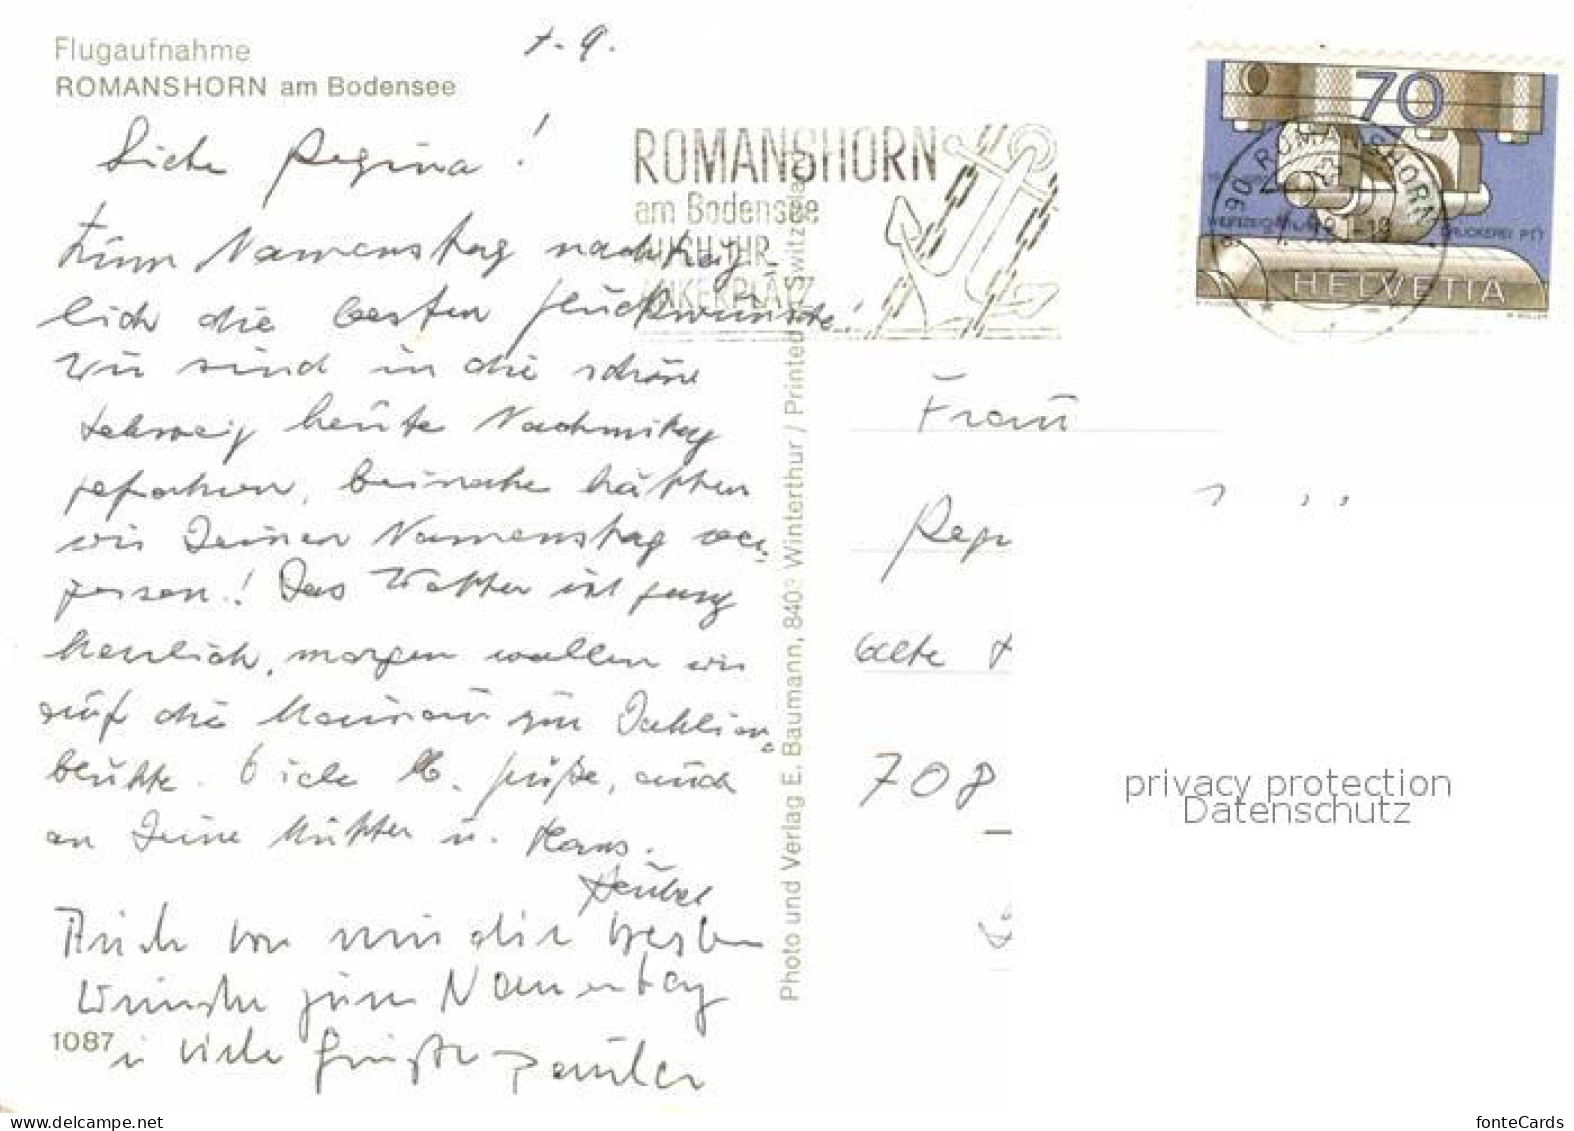 Flugaufnahme
ROMANSHORN am Bodensee
7.9.
Liebe Regina!
Zum Namenstag nachträg-
lich die besten Glückwünsche!
Wir sind in die schöne
Schweiz heute Nachmittag
gefahren, beinahe hätten
wir Deinen Namenstag ver-
gessen! Das Wetter ist ganz
herrlich, morgen wollen wir
auf die Mainau zur Dahlien-
blühte. Viele lb. Grüße, auch
an Deine Mutter u. Hans.
Auch von mir die besten
Wünsche zum Namenstag
u viele Grüße
1087
Photo und Verlag E. Baumann, 8403 Winterthur / Printed in Switzerland
ROMANSHORN
am Bodensee
AUCH IHR
ANKERPLATZ
70
8590 ROMANSHORN
WERTZEICHEN
DRUCKEREI PTT
HELVETIA
Frau
Alte
708
privacy protection
Datenschutz
www.delcampe.net
fonteCards